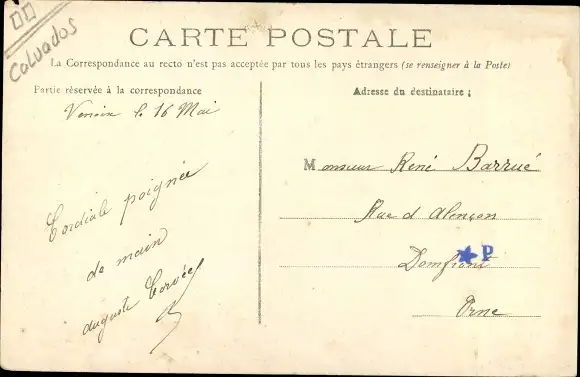 Calvados
CARTE POSTALE
La Correspondance au recto n'est pas acceptée par tous les pays étrangers (se renseigner à la Poste)
Partie réservée à la correspondance
le 16 Mai
Cordiale poignée
de main
auguste
Adresse du destinataire ;
Monsieur René Barrué
Rue d Alençon
Domfront
P
Orne